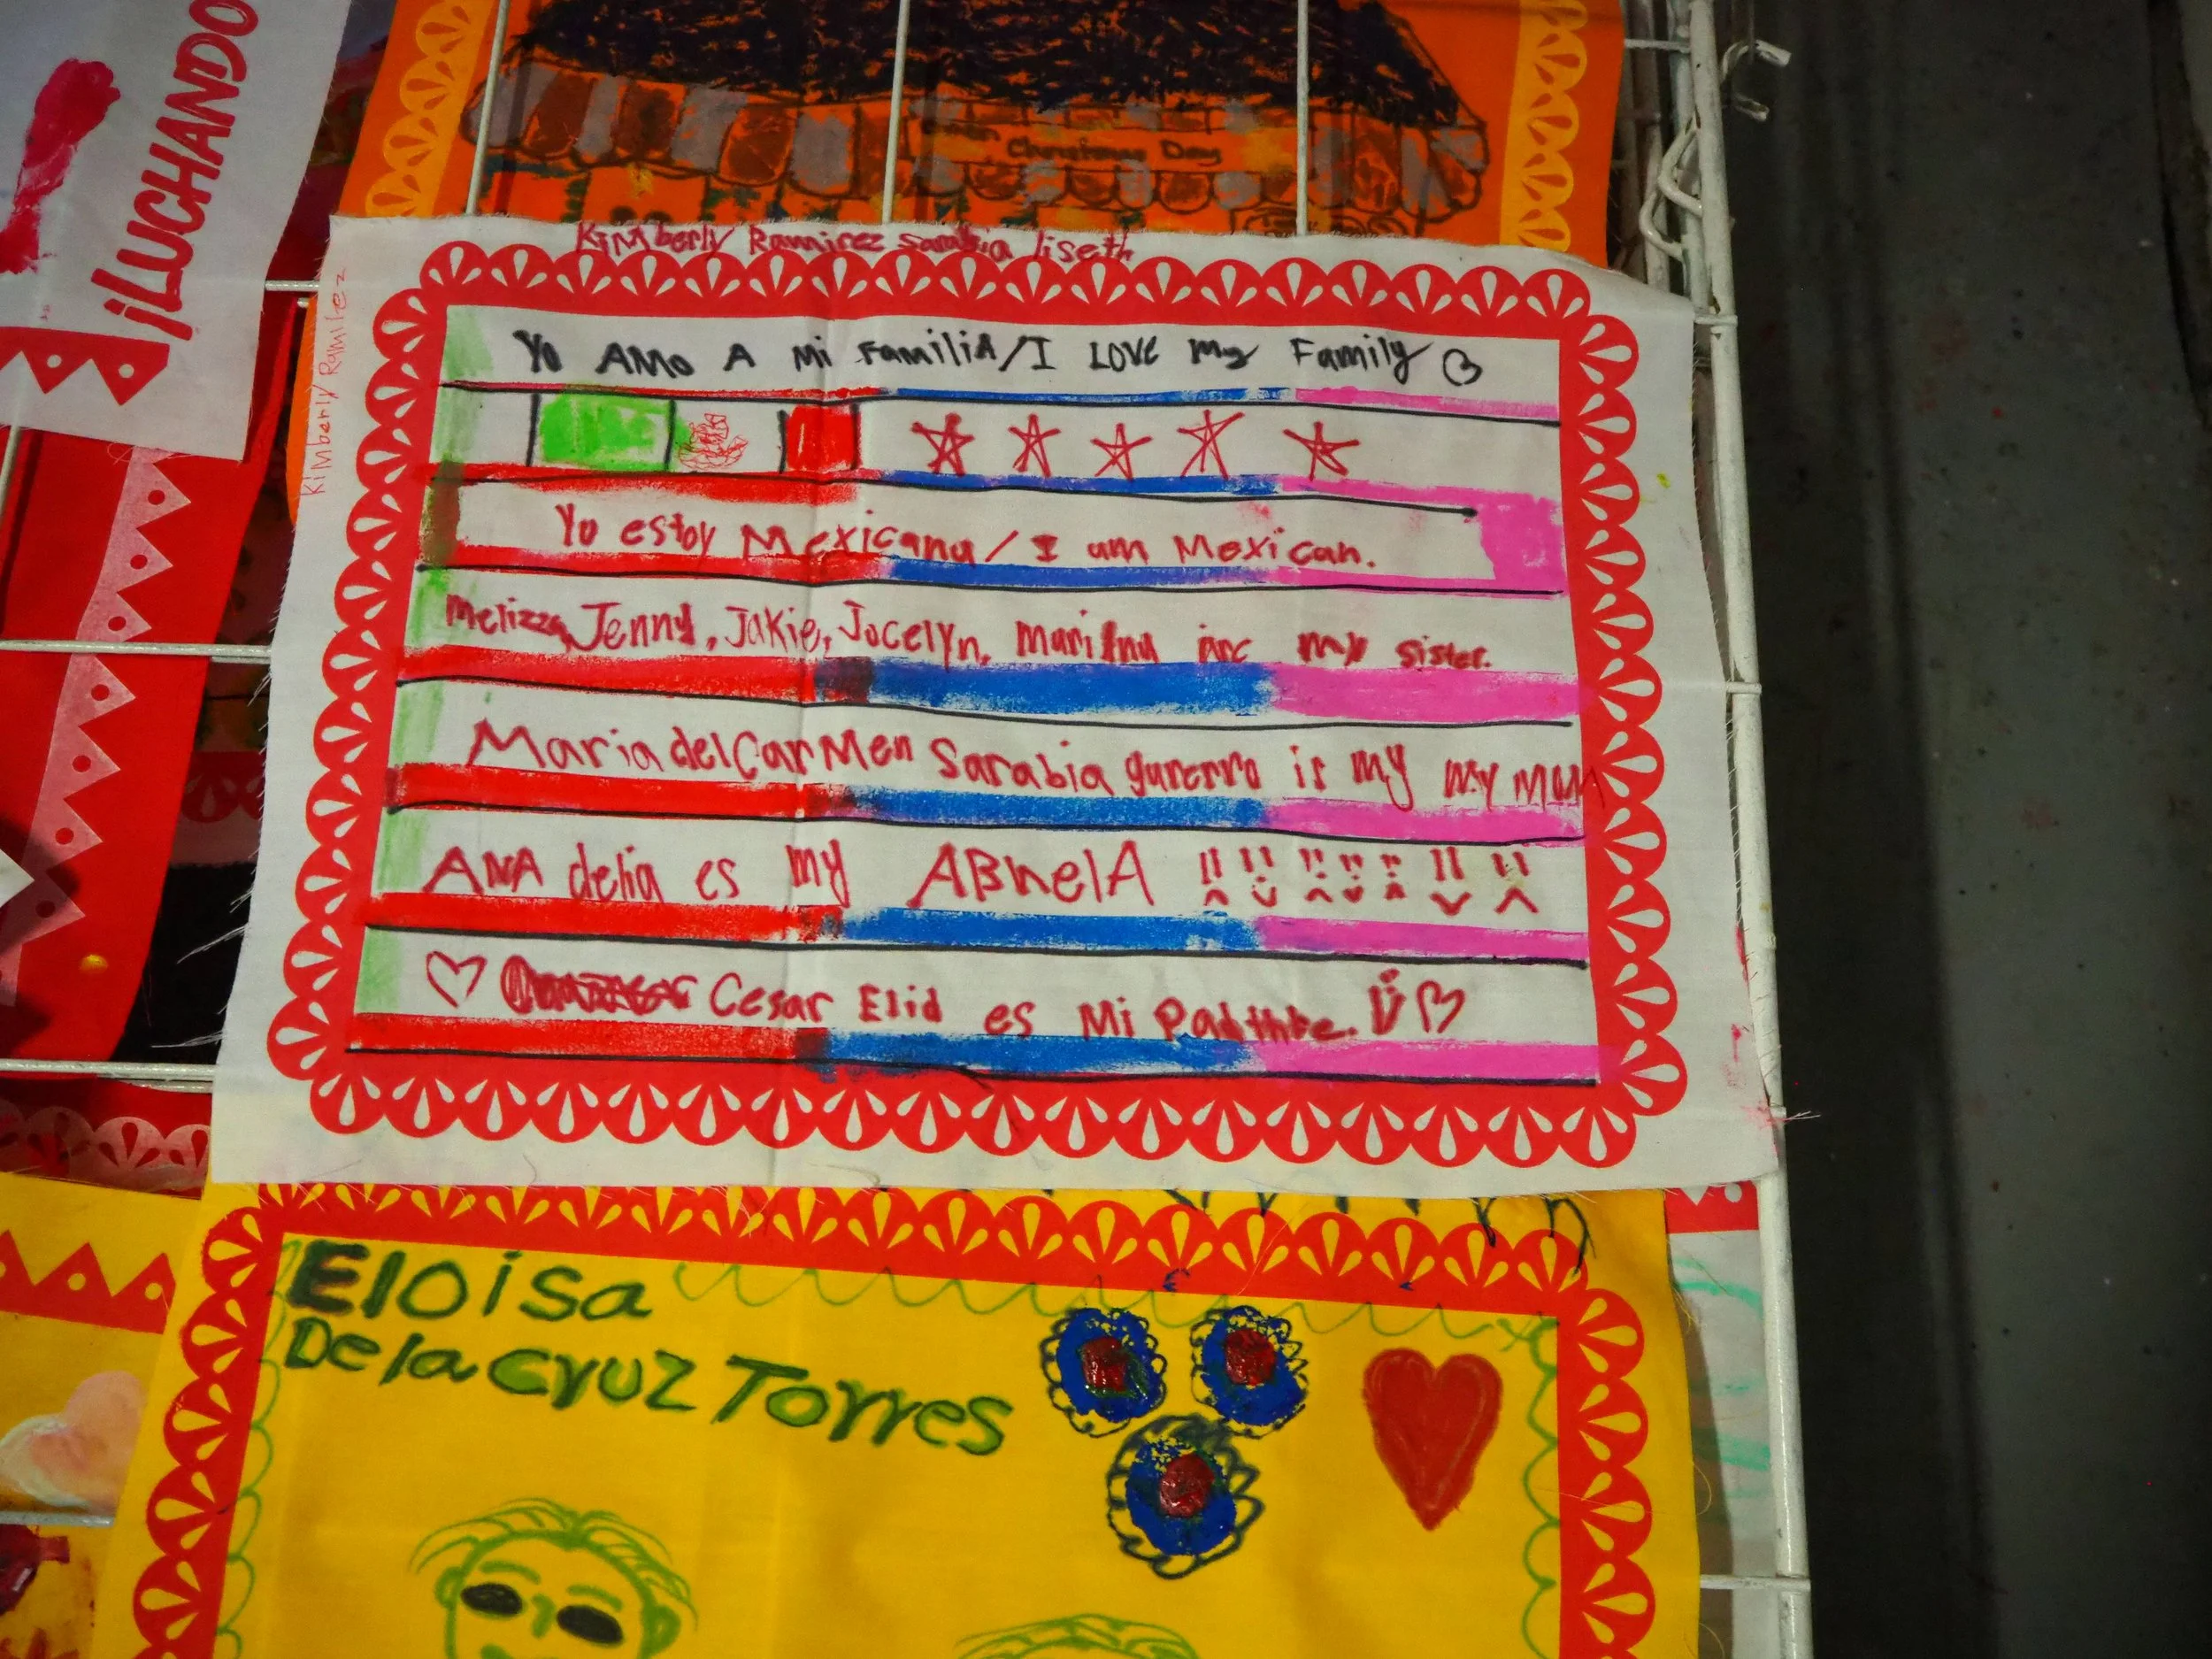 ¡LUCHANDO
Christmas Day
Kimberly Ramirez Sarabia liseth
Kimberly Ramirez
Yo AMo A Mi FamiliA/I LOVE My Family
Yo estoy Mexicana/I am Mexican.
Melizza, Jenny, Jakie, Jocelyn, my sister.
Maria del CarMen Sarabia gurerro is my my MOM
ANA delia es my ABuelA
Cesar Elid es Mi
Eloisa
De la cruz Torres